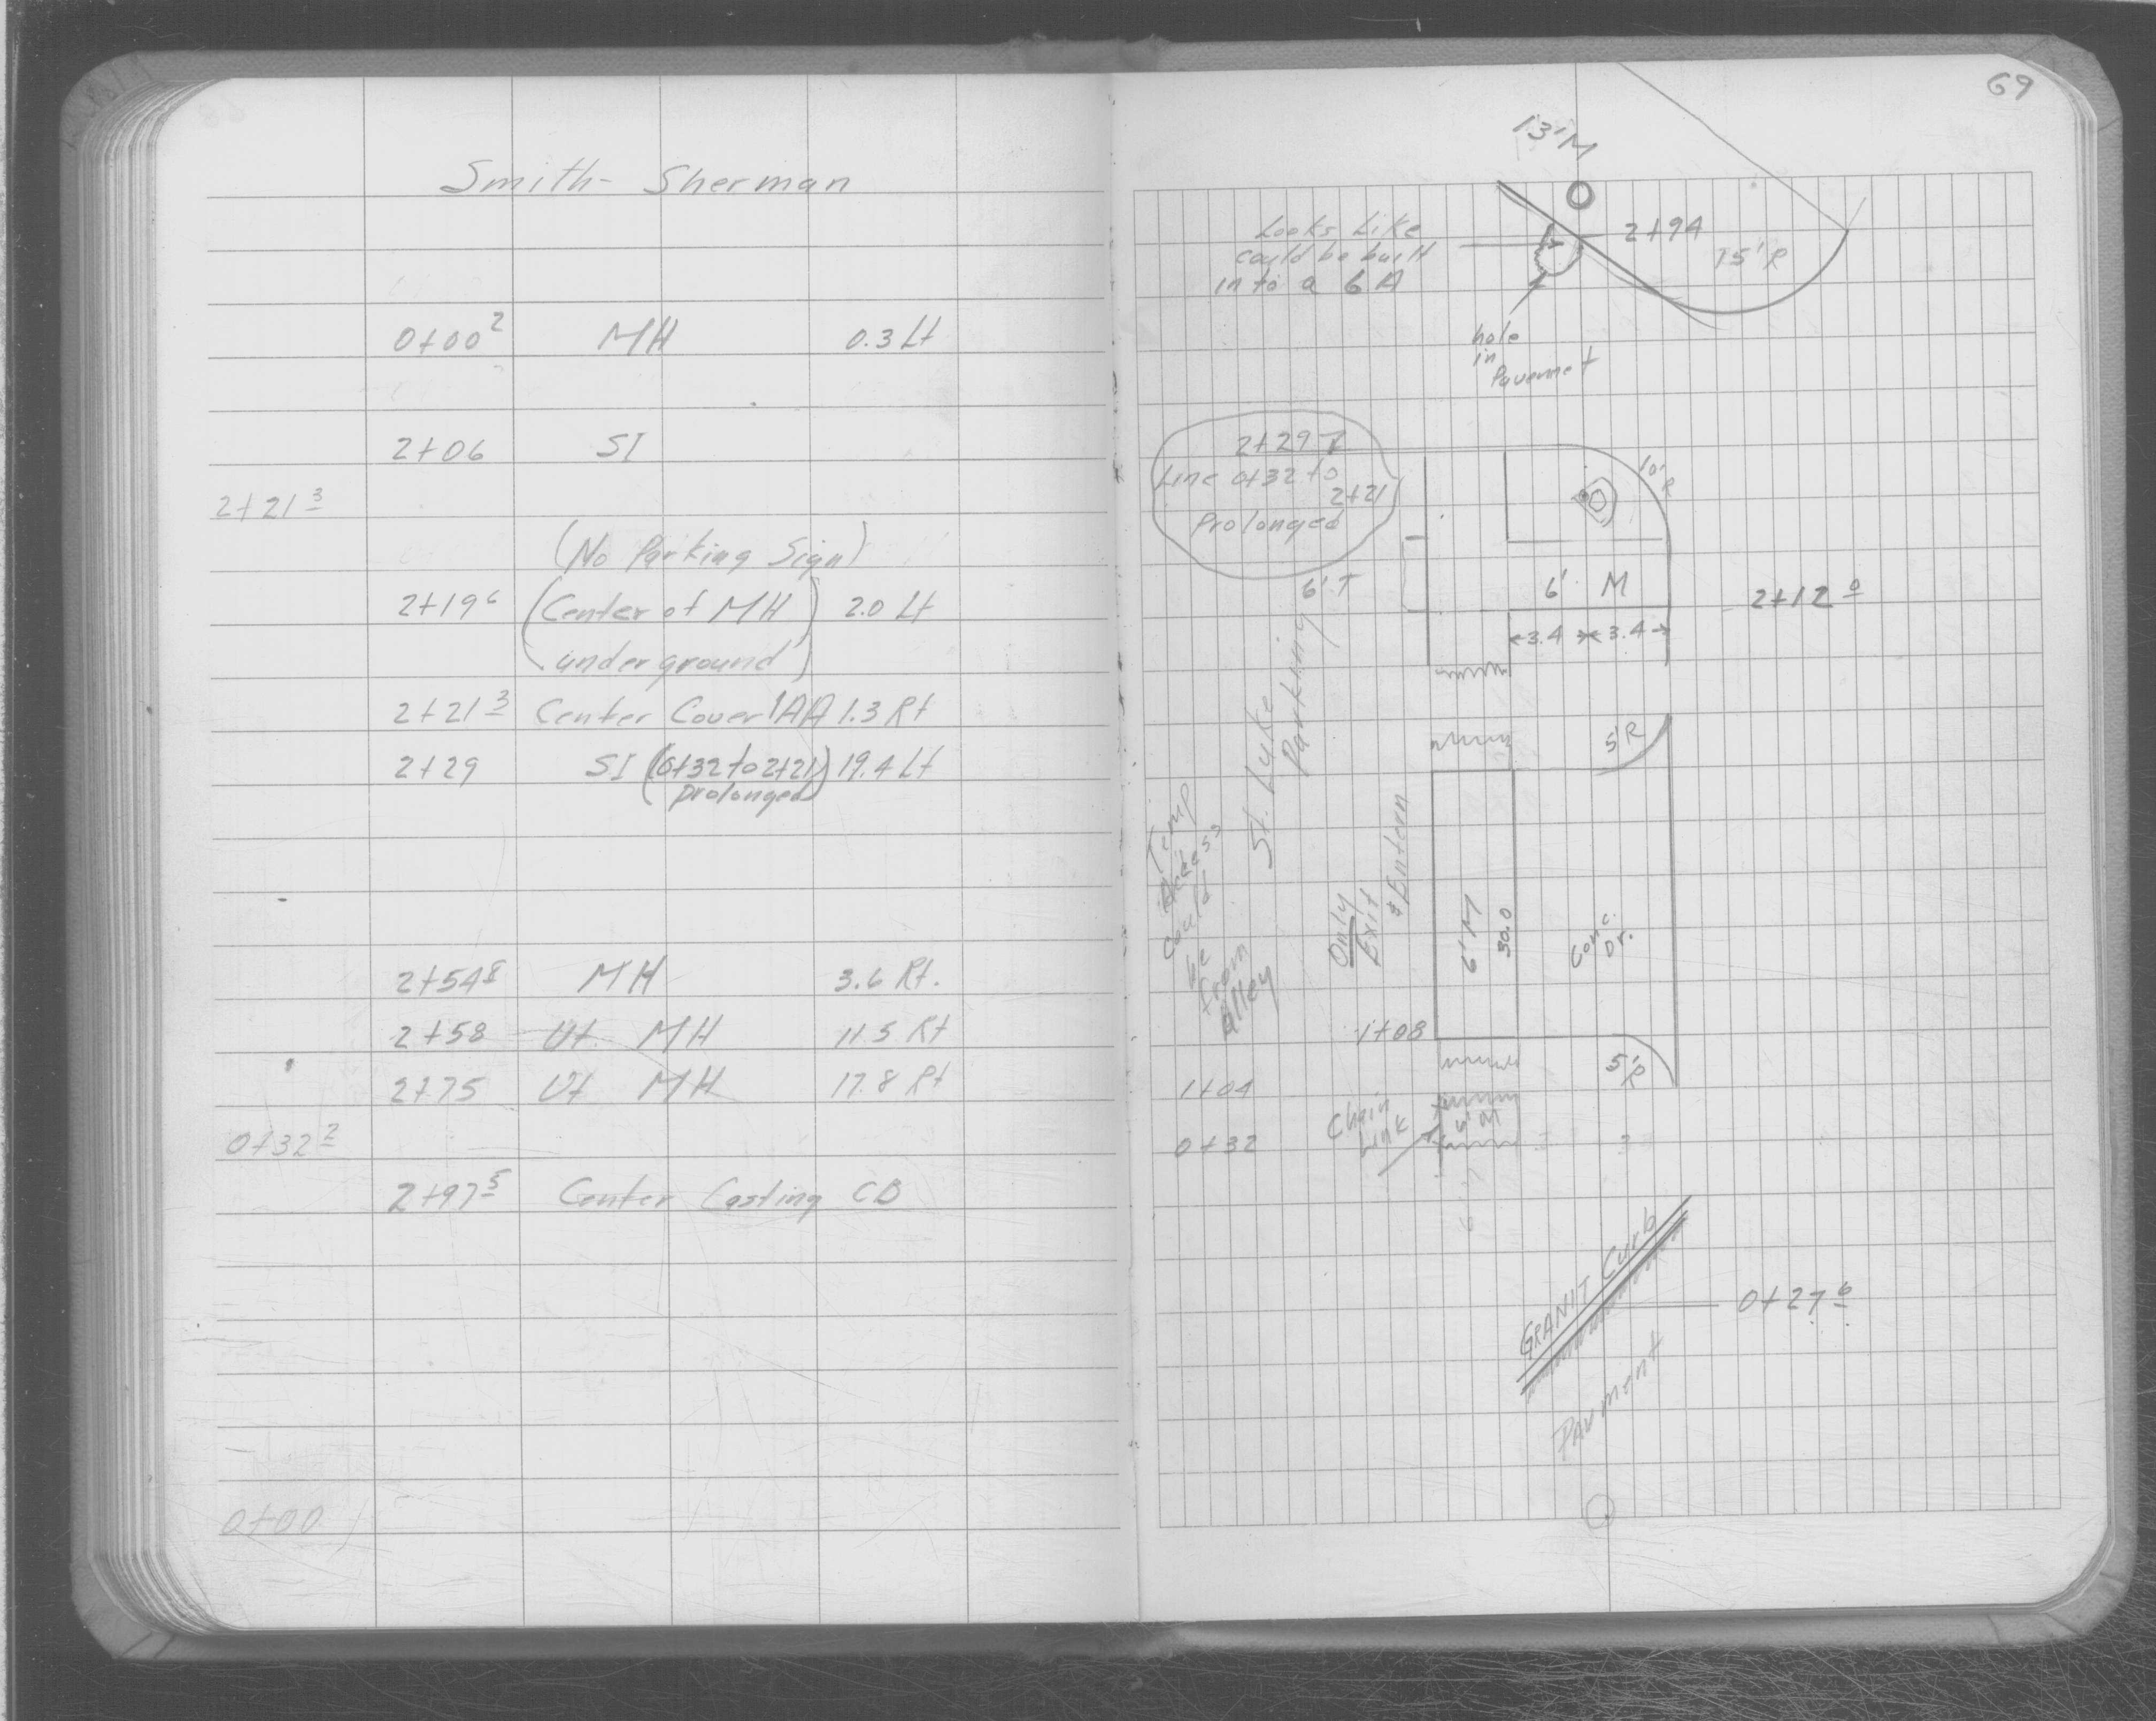 Smith- Sherman
0+00² MH 0.3 Lt
2+06 SI
2+21³
(No Parking Sign)
2+19⁶ (Center of MH) 2.0 Lt
underground
2+21³ Center Cover 1AA 1.3 Rt
2+29 SI (0+32 to 2+21) 19.4 Lt
prolonged
2+54⁸ MH 3.6 Rt.
2+58 Ut. MH 11.5 Rt
2+75 Ut MH 17.8 Rt
0+32²
2+97⁵ Center Casting CB
0+00
69
13'M
Looks Like
could be built
in to a 6A
2+94
15'R
hole
in
Pavemnet
2+29 T
Line 0+32 to
2+21
Prolonged
10'
R
6'T
6' M
2+12⁰
3.4 3.4
St. Luke
Parking
5'R
Temp
Access
could
be
from
alley
Only
Exit
& Entern
6'M
30.0
Conc.
Dr.
1+08
5'
R
1+04
Chain
Link
6'M
0+32
GRANIT Curb
0+27⁶
Pavment